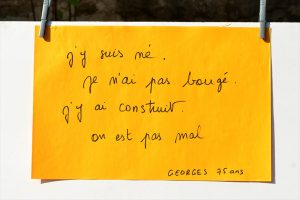 j'y suis né.
je n'ai pas bougé.
j'y ai construit.
on est pas mal
GEORGES 75 ans